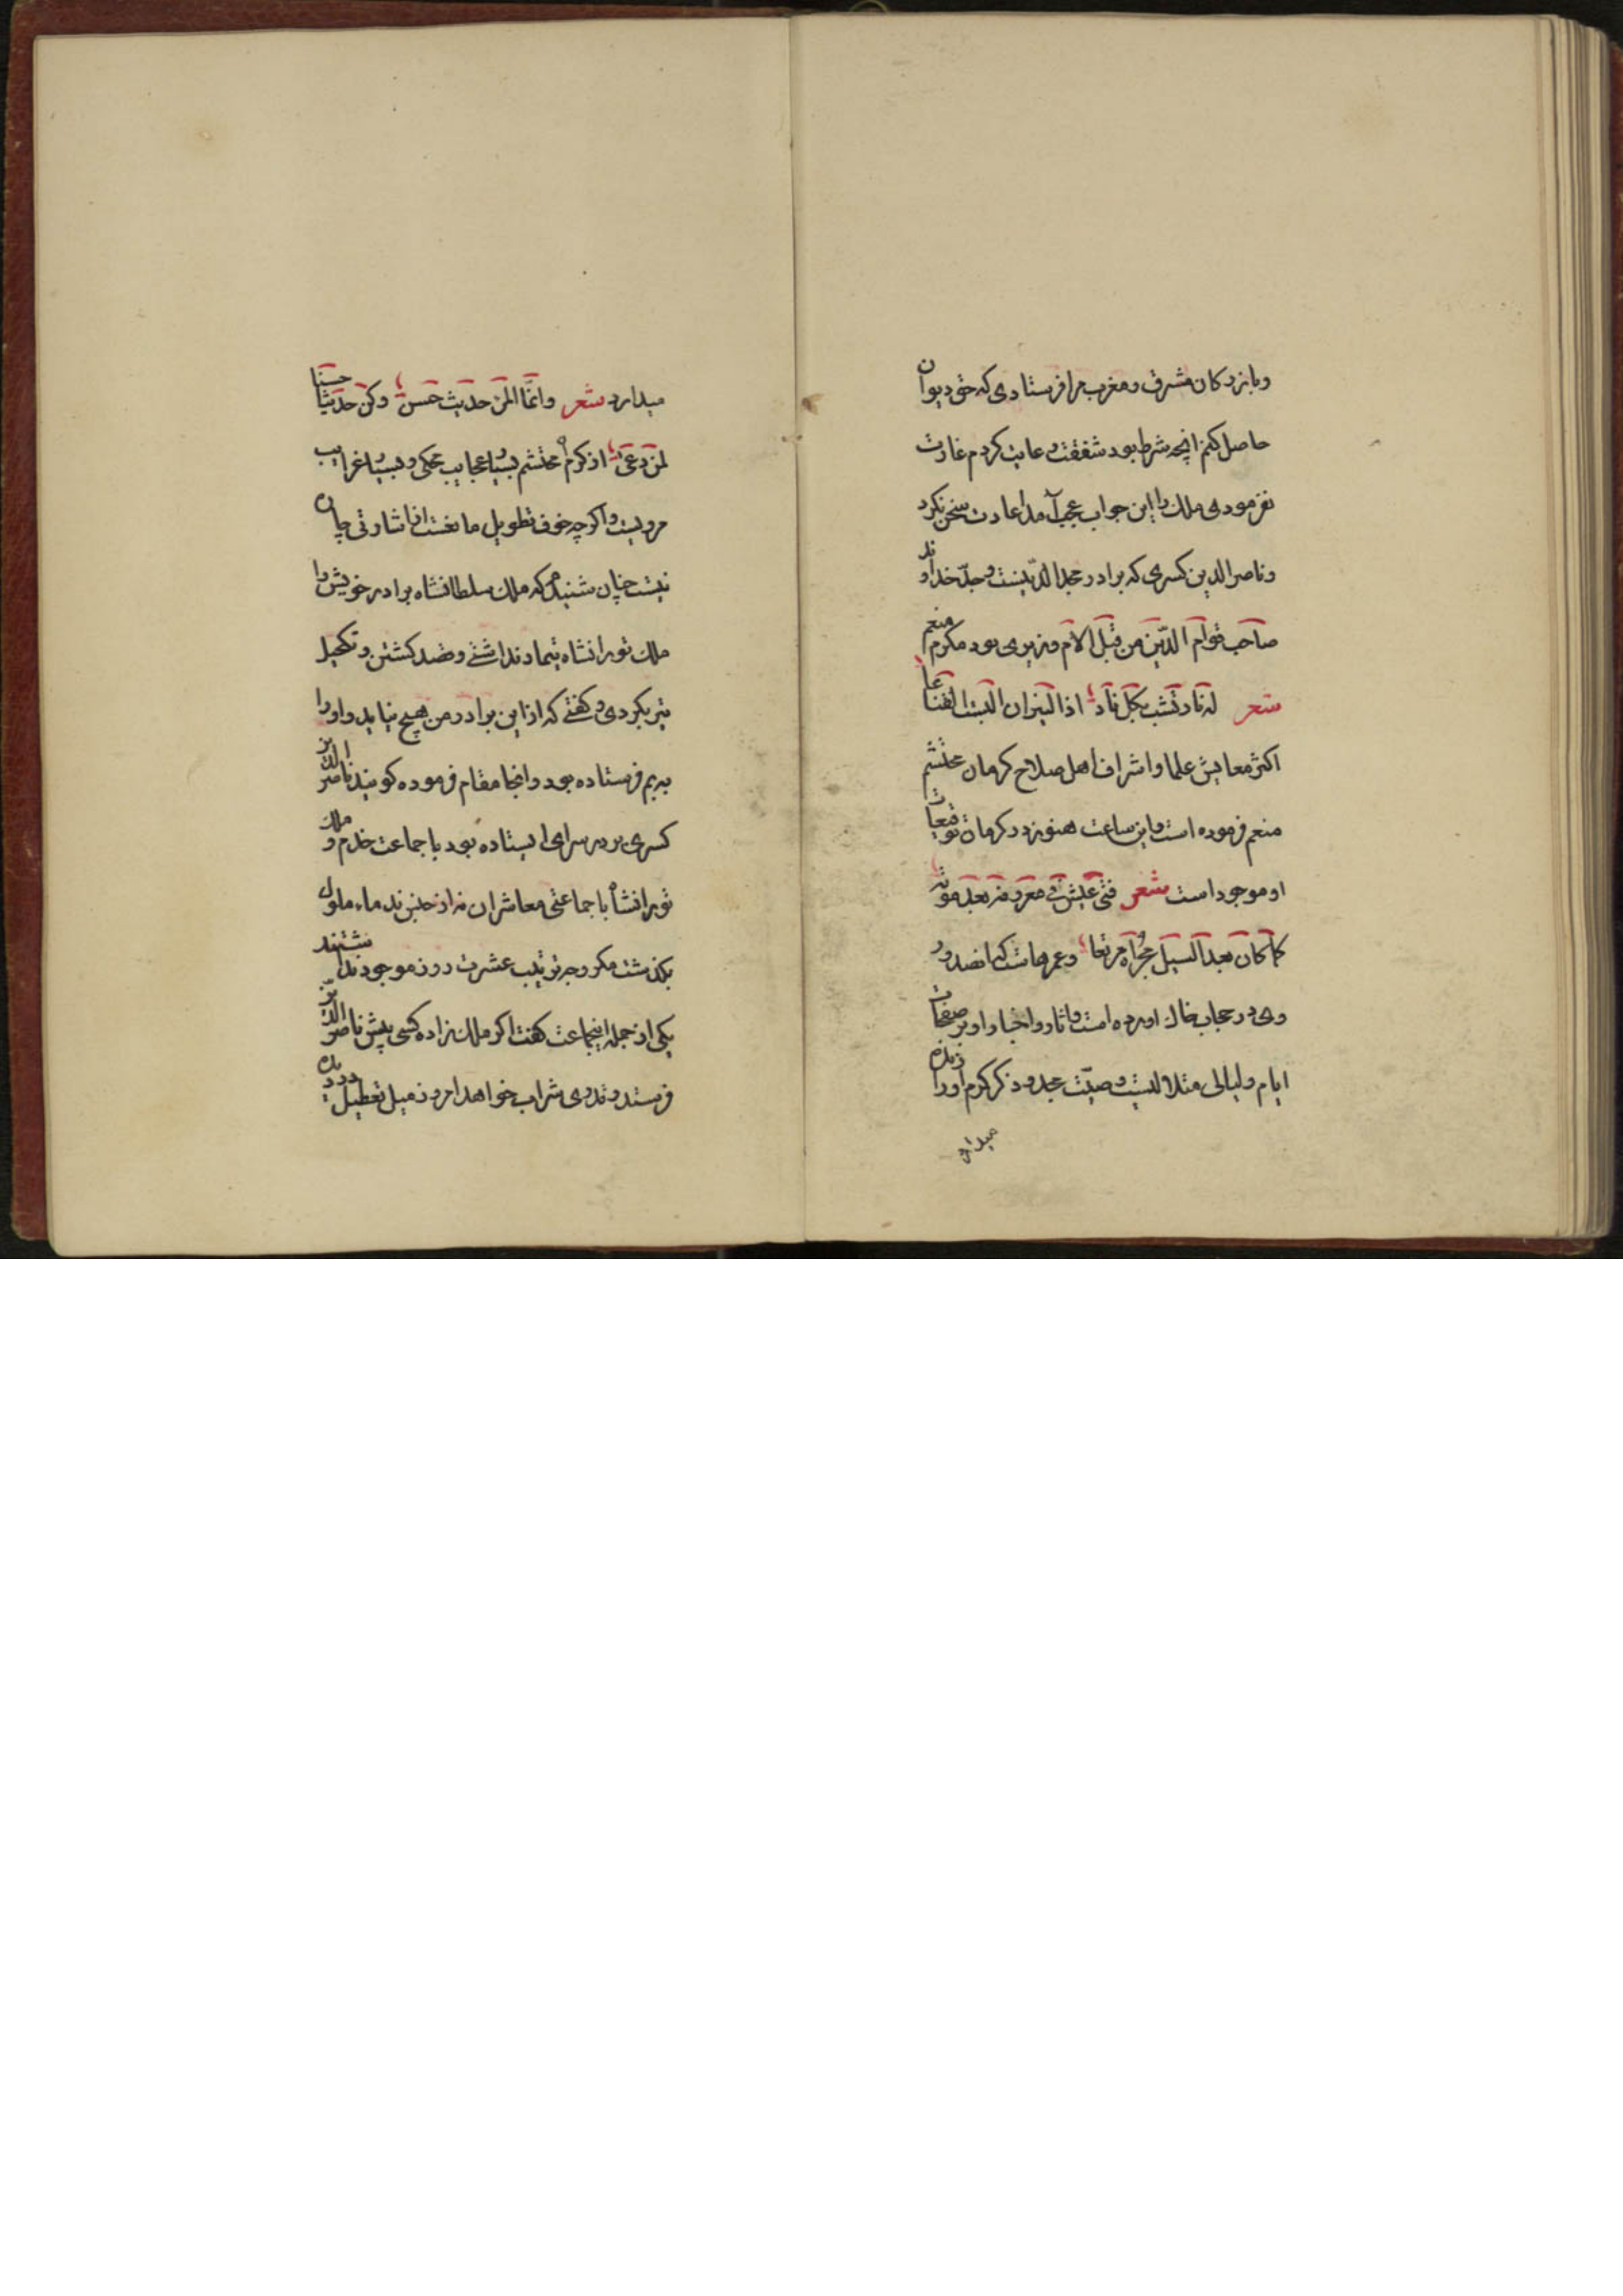 وبازرکان مشرق ومغرب را فرستادی که حق دیوان
حاصل کنم انچه شرط بود شفقت و عایت کردم غارت
نفرمودی ملک را این جواب عجب آمد اعادت سخن نکرد
وناصر الدین کسری که برادر مجد الدینست وجد خداوند
صاحب قوام الدین من قبل الام وزیری بود مکرم منعم
شعر له نار تشب بکل ناد اذا النیران البست القناعا
اکثر معایش علما واشراف اهل صلاح کرمان محتشم
منعم فرموده است واین ساعت هنوز در کرمان توقیعات
او موجود است شعر فتی عیش فی معروفه بعد موته
کما کان بعد السیل مجراه مرتعا وعمرهاست که انصدور
وی در حجاب خاک اورده است واثار واخبار او بر صفحات
ایام ولیالی مثلا لیست وصیت عدو ذکر کرم او را زنده
میدارد
میدارد شعر وانما المرء حدیث حسن وکن حدیثا حسنا
لمن وعی از کرم محتشم بسیار عجایب محکی وبسیار غرایب
مرویست واکرچه خوف تطویل مانعست از اشارتی چاره
نیست چنان شنیدم که ملک سلطانشاه برادر خویش را
ملک تورانشاه تیمار نداشتی وقصد کشتن و تکحیل
نیز نکردی وکفتی که ازین برادر من هیچ نیاید واورا
به بم فرستاده بود وانجا مقام فرموده کویند ناصر الدین
کسری بر در سرای ایستاده بود با جماعت خدم و ملک
تورانشاه با جماعتی معاشران نه از جنس ندماء ملوک
بکذشت مکر وجه ترتیب عشرت روز موجود نداشتند
یکی از جمله اینجماعت کفت اکر ملک زاده کسی پیش ناصر الدین
فرستد وقدری شراب خواهد امروز میل تعطیل